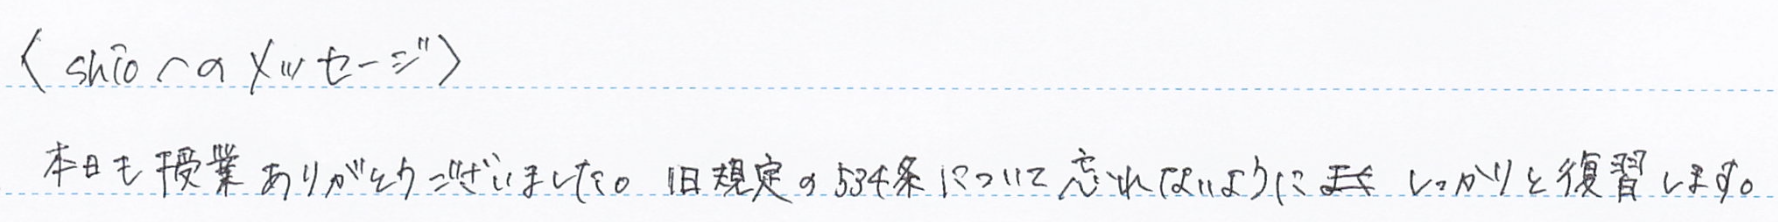 〈shioへのメッセージ〉
本日も授業ありがとうございました。旧規定の534条について忘れないように しっかりと復習します。